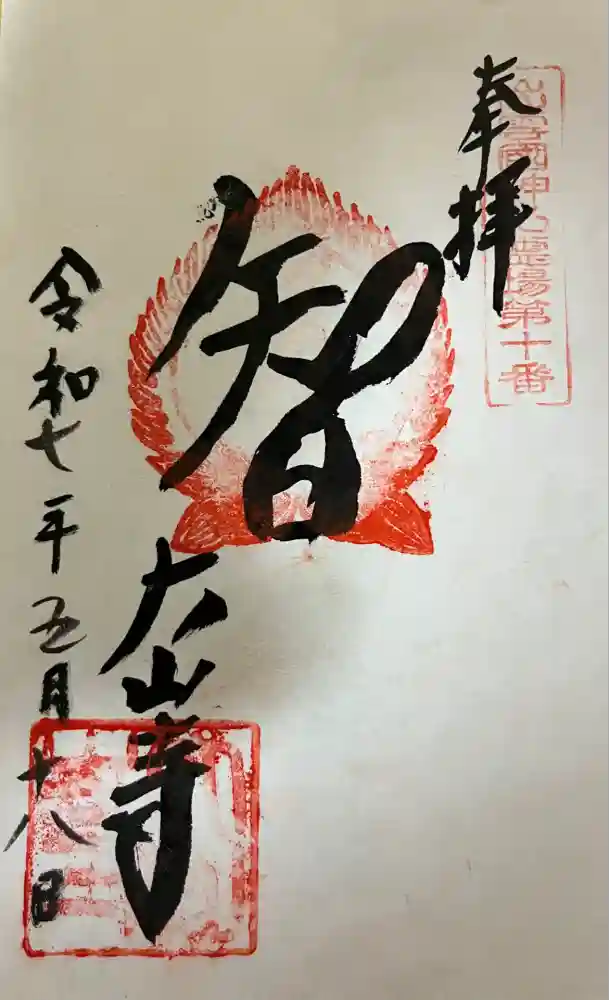 奉拝
出雲國神仏霊場第十番
智
大山寺
令和七年五月十八日